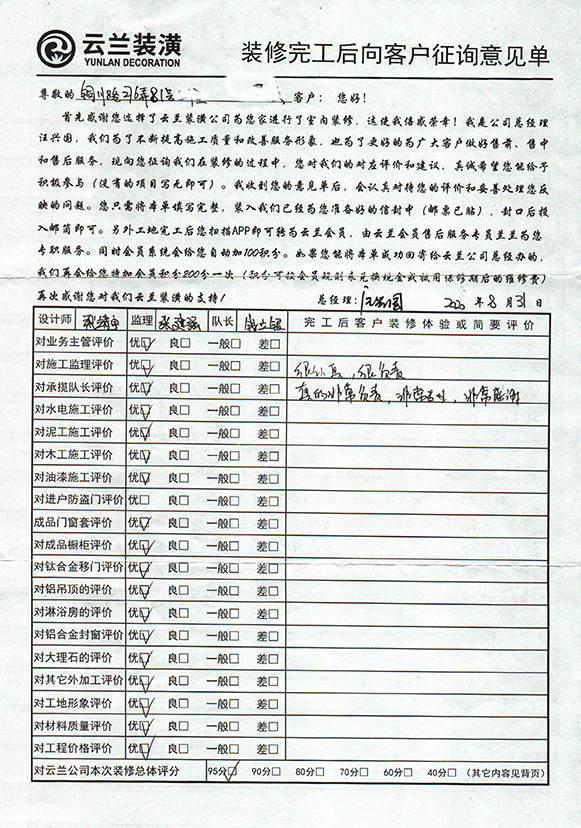 云兰装潢
YUNLAN DECORATION
装修完工后向客户征询意见单
尊敬的 铜川路 客户：您好！
首先感谢您选择了云兰装潢公司为您家进行了室内装修，这使我倍感荣幸！我是公司总经理
汪兴国，我们为了不断提高施工质量和改善服务形象，也为了更好的为广大客户做好售前、售中
和售后服务，现向您征询我们在装修的过程中，您对我们的对应评价和建议，真诚希望您能给予
积极参与（没有的项目写无即可）。我收到您的意见单后，会认真对待您的评价和妥善处理您反
映的问题。您只需将本单填写完整，装入我们已经为您准备好的信封中（邮票已贴），封口后投
入邮筒即可。另外工地完工后您扫描APP即可转为云兰会员，由云兰会员售后服务专员兰兰为您
专职服务。同时会员系统会给您自动加100积分。如果您能将本单成功回寄给云兰公司总经办的，
我们再会给您特加会员积分200分一次（积分可按会员规则来兑换现金或被用保修期后的维修费）
再次感谢您对我们云兰装潢的支持！ 总经理： 2020 年 8 月 31 日
设计师 监理 队长 完工后客户装修体验或简要评价
对业务主管评价 优□ 良□ 一般□ 差□
对施工监理评价 优□ 良□ 一般□ 差□ 很认真，很负责
对承揽队长评价 优□ 良□ 一般□ 差□ 真的非常负责，非常，非常感谢
对水电施工评价 优□ 良□ 一般□ 差□
对泥工施工评价 优□ 良□ 一般□ 差□
对木工施工评价 优□ 良□ 一般□ 差□
对油漆施工评价 优□ 良□ 一般□ 差□
对进户防盗门评价 优□ 良□ 一般□ 差□
成品门窗套评价 优□ 良□ 一般□ 差□
对成品橱柜评价 优□ 良□ 一般□ 差□
对钛合金移门评价 优□ 良□ 一般□ 差□
对铝吊顶的评价 优□ 良□ 一般□ 差□
对淋浴房的评价 优□ 良□ 一般□ 差□
对铝合金封窗评价 优□ 良□ 一般□ 差□
对大理石的评价 优□ 良□ 一般□ 差□
对其它外加工评价 优□ 良□ 一般□ 差□
对工地形象评价 优□ 良□ 一般□ 差□
对材料质量评价 优□ 良□ 一般□ 差□
对工程价格评价 优□ 良□ 一般□ 差□
对云兰公司本次装修总体评分 95分□ 90分□ 80分□ 70分□ 60分□ 40分□（其它内容见背页）